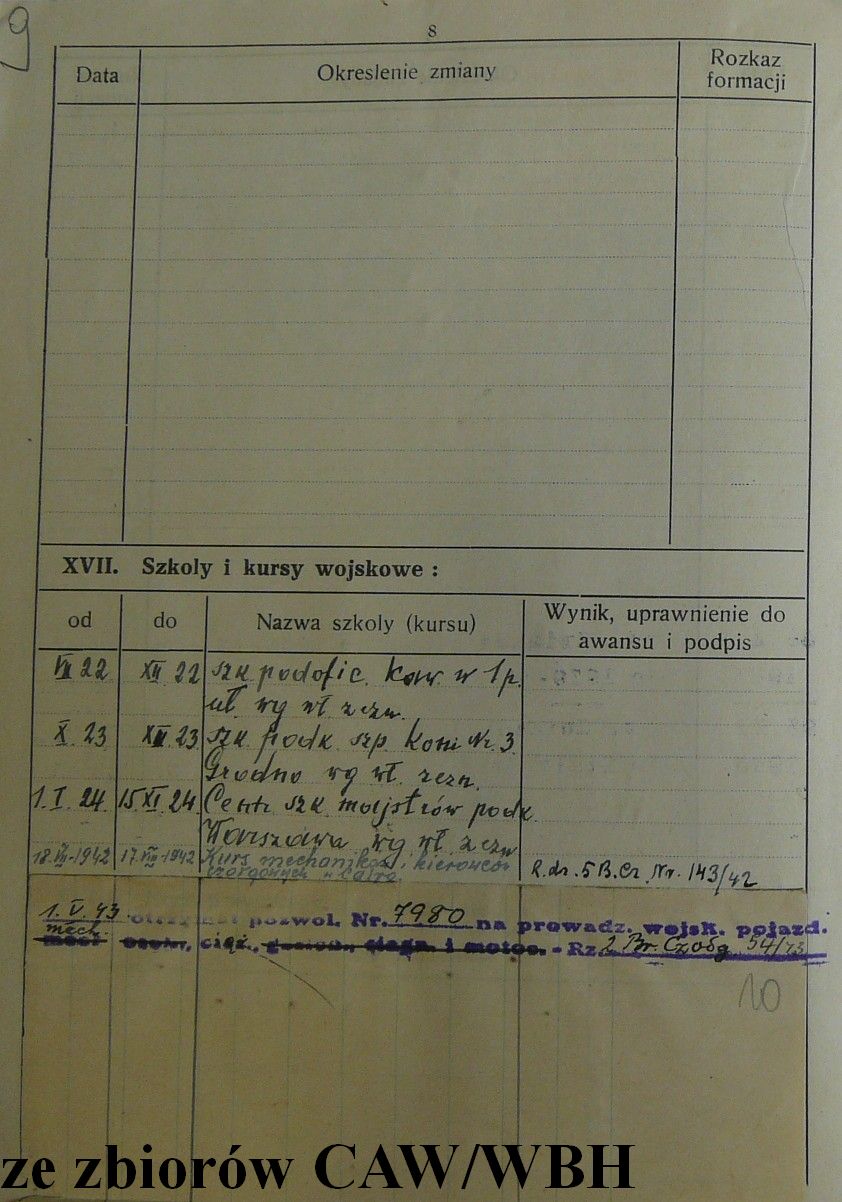 9
8
Data
Okreslenie zmiany
Rozkaz
formacji
XVII. Szkoly i kursy wojskowe :
od
do
Nazwa szkoly (kursu)
Wynik, uprawnienie do
awansu i podpis
VII 22 XII 22 szk podofic. kaw. w 1 p.
uł. wg wł. zezn.
X. 23 XII 23 szk podk szp. koni Nr. 3
Grodno wg wł. zezn.
1. I. 24. 15 XI 24. Centr szk majstrów podk.
Warszawa wg wł. zezn
18.VI-1942 17.VII-1942 Kurs mechaników, kierowców
czołgowych w Cairo.
R. dz. 5 B. Cz. Nr. 143/42
1. V 43 otrzymał pozwol. Nr. 7980 na prowadz. wojsk. pojazd.
mech.
osobw, cięż., ciągn. i motoc. - Rz. 2 Br. Czołg 54/43
10
ze zbiorów CAW/WBH